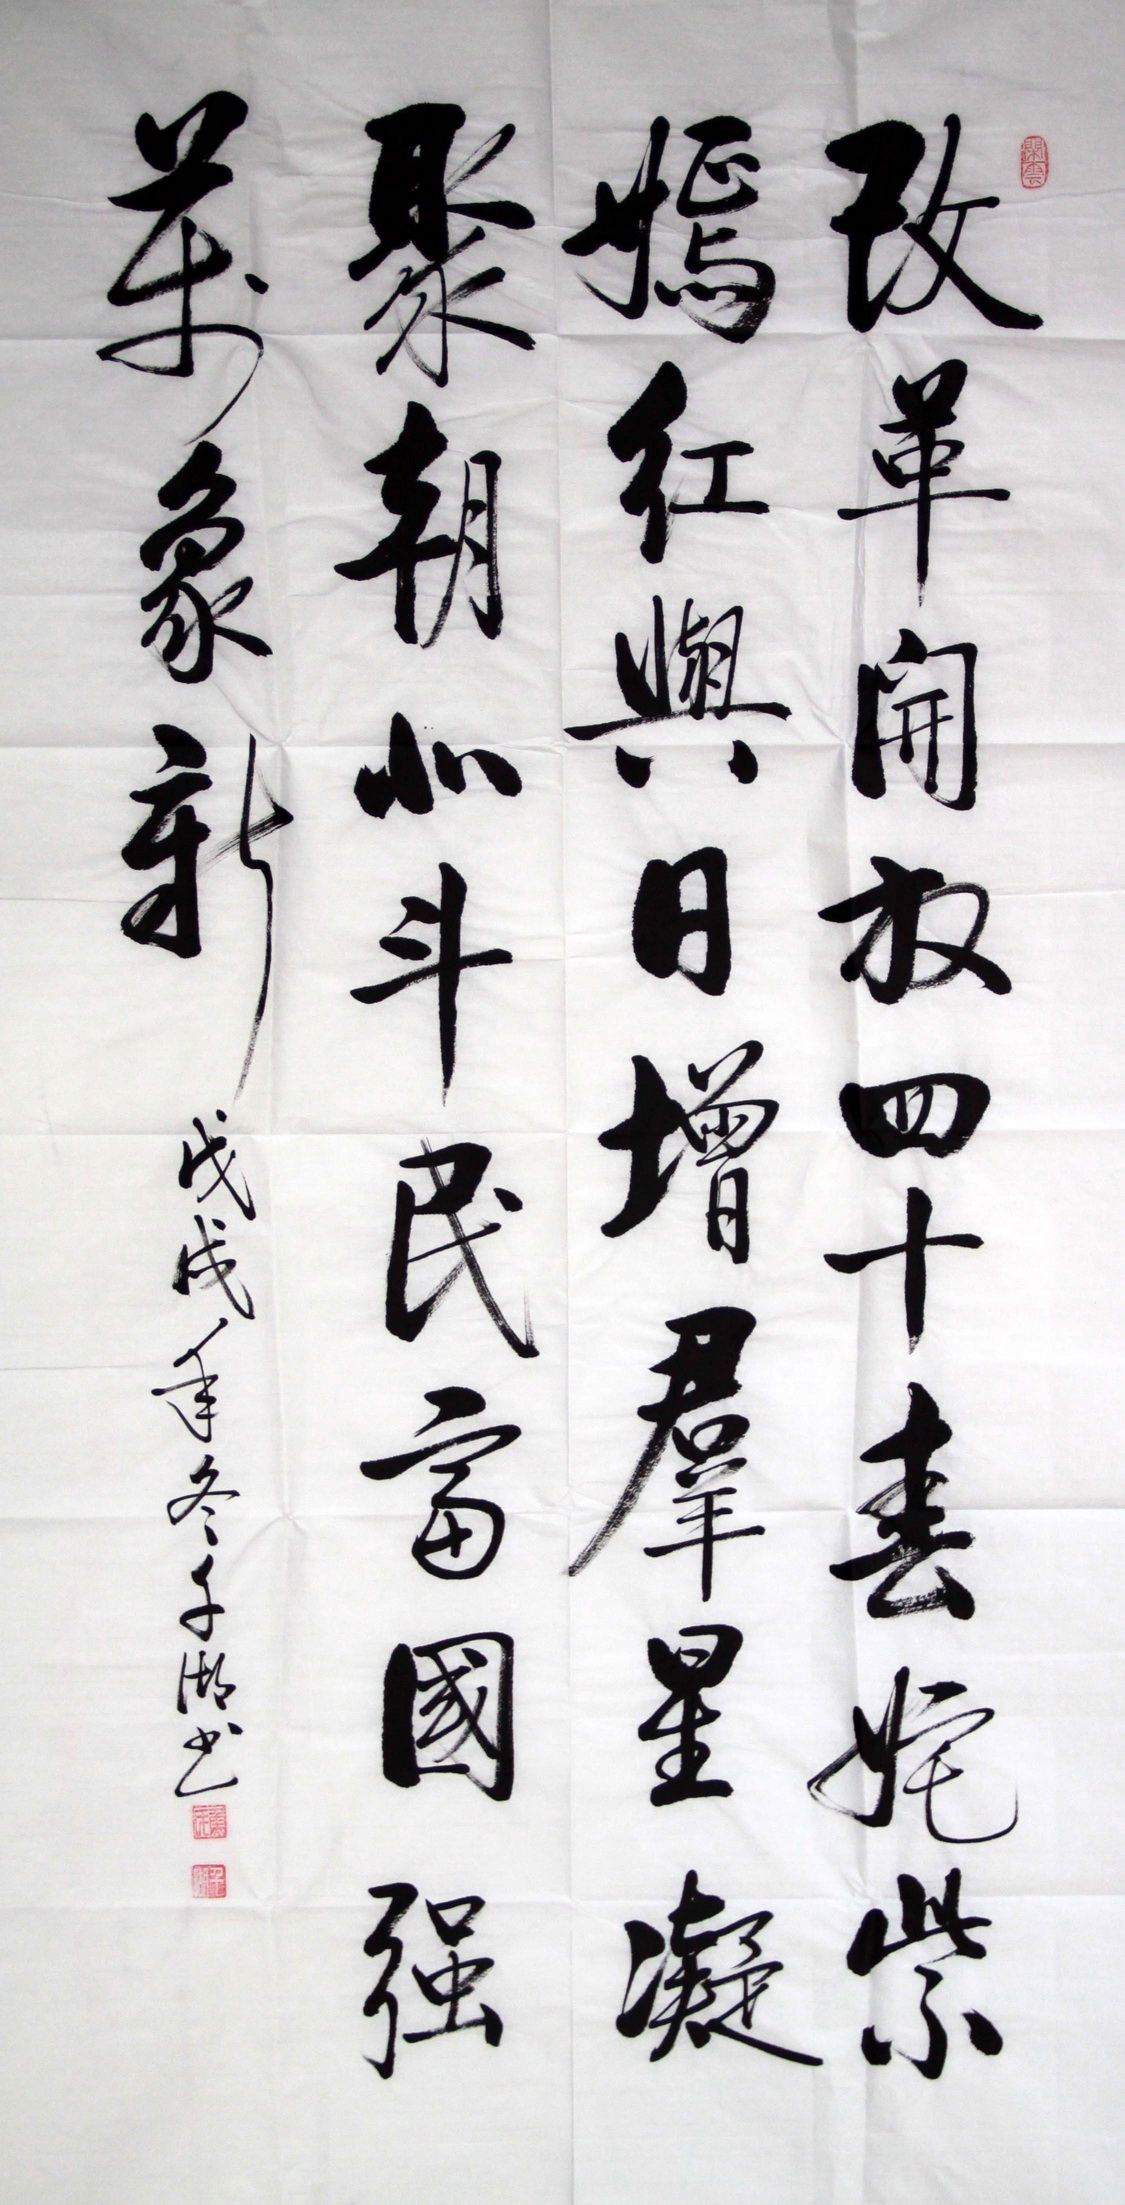 改革開放四十春姹紫
嫣红與日增羣星凝
聚朝北斗民富國强
萬象新
戊戌年冬子湖书